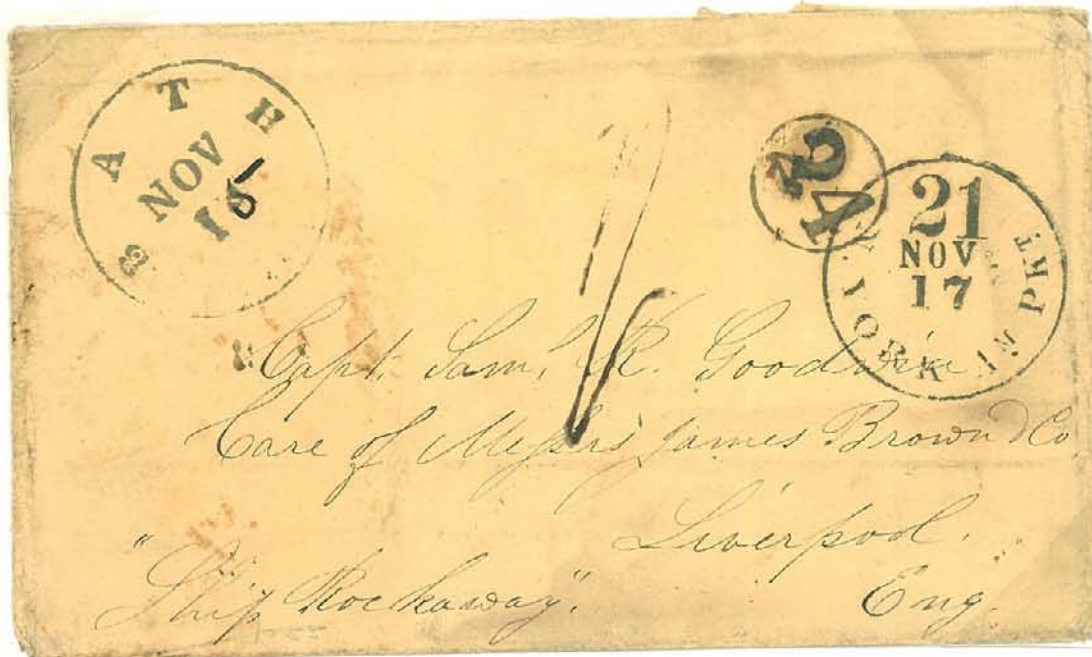 BATH
NOV
15
24
21
NOV
17
YORK AM PKT
Capt. Sam. R. Goodwin
Care of Messrs James Brown & Co
Liverpool.
Eng.
"Ship Rockaway".
1855